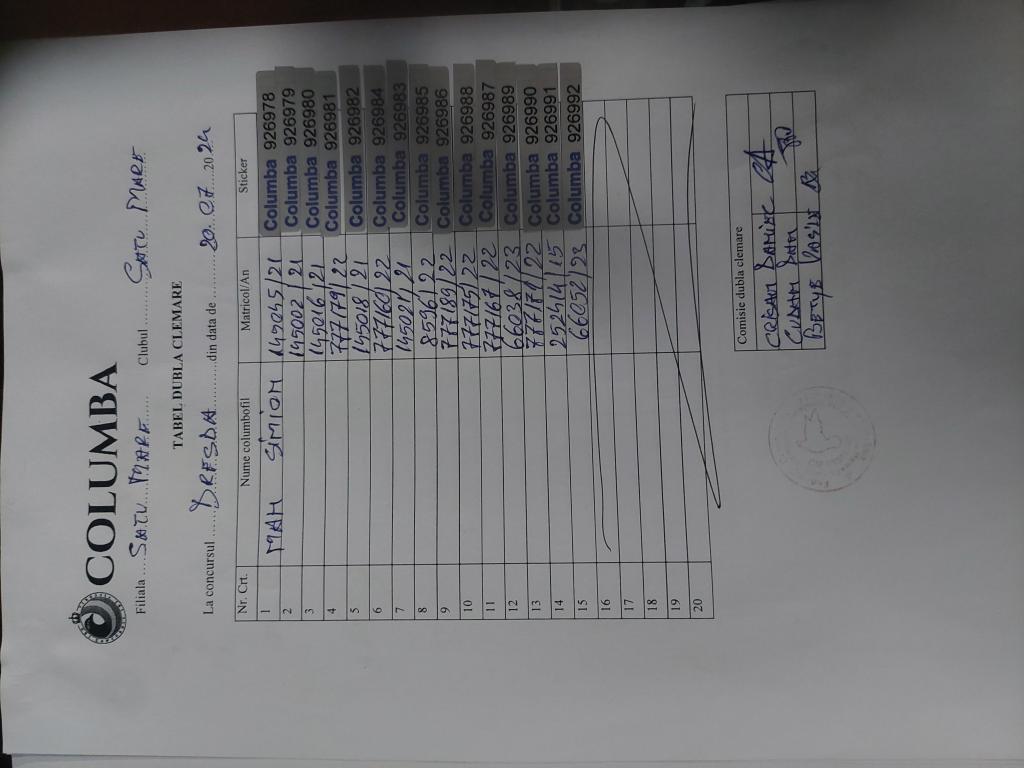 COLUMBA
Filiala .... SATU MARE ..... Clubul ........ SATU MARE
TABEL DUBLA CLEMARE
La concursul ...... DRESDA ............din data de ......... 20..07...20 24
Nr. Crt. Nume columbofil Matricol/An Sticker
1 SIMION 145045/21 Columba 926978
2 145002/21 Columba 926979
3 145016/21 Columba 926980
4 777179/22 Columba 926981
5 145018/21 Columba 926982
6 777160/22 Columba 926984
7 145021/21 Columba 926983
8 8596/22 Columba 926985
9 777189/22 Columba 926986
10 777175/22 Columba 926988
11 777167/22 Columba 926987
12 66038/23 Columba 926989
13 777171/22 Columba 926990
14 252414/15 Columba 926991
15 66052/23 Columba 926992
16
17
18
19
20
Comisie dubla clemare